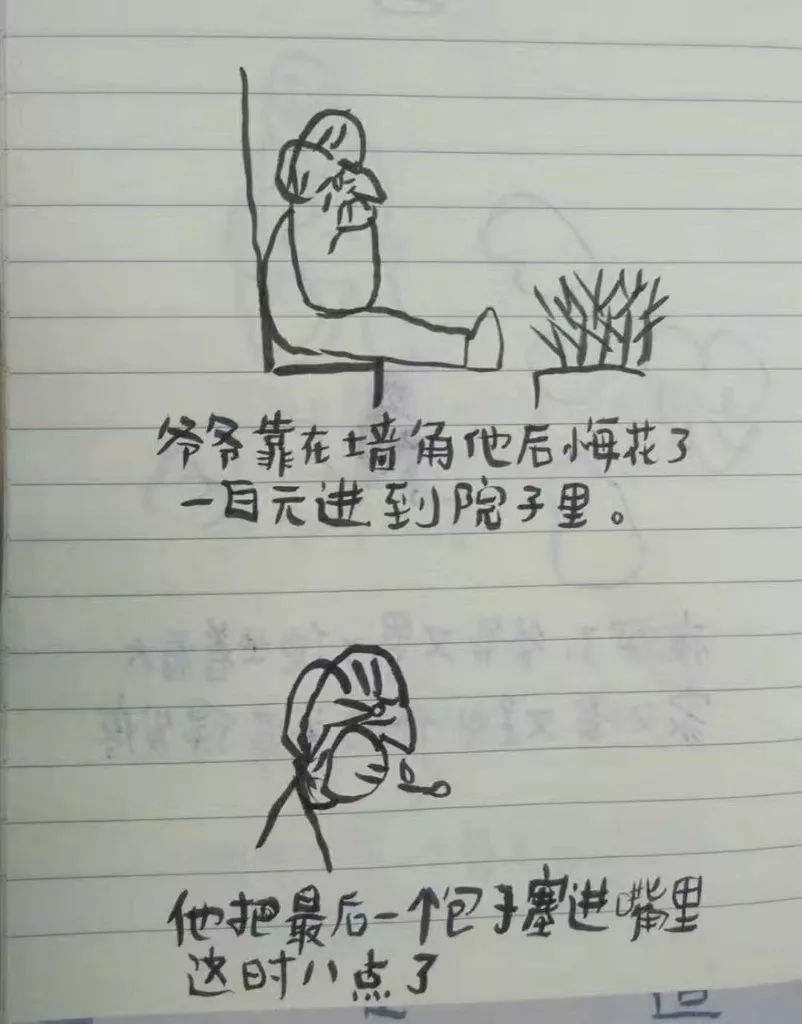 爷爷靠在墙角他后悔花了
一百元进到院子里。
他把最后一个包子塞进嘴里
这时八点了